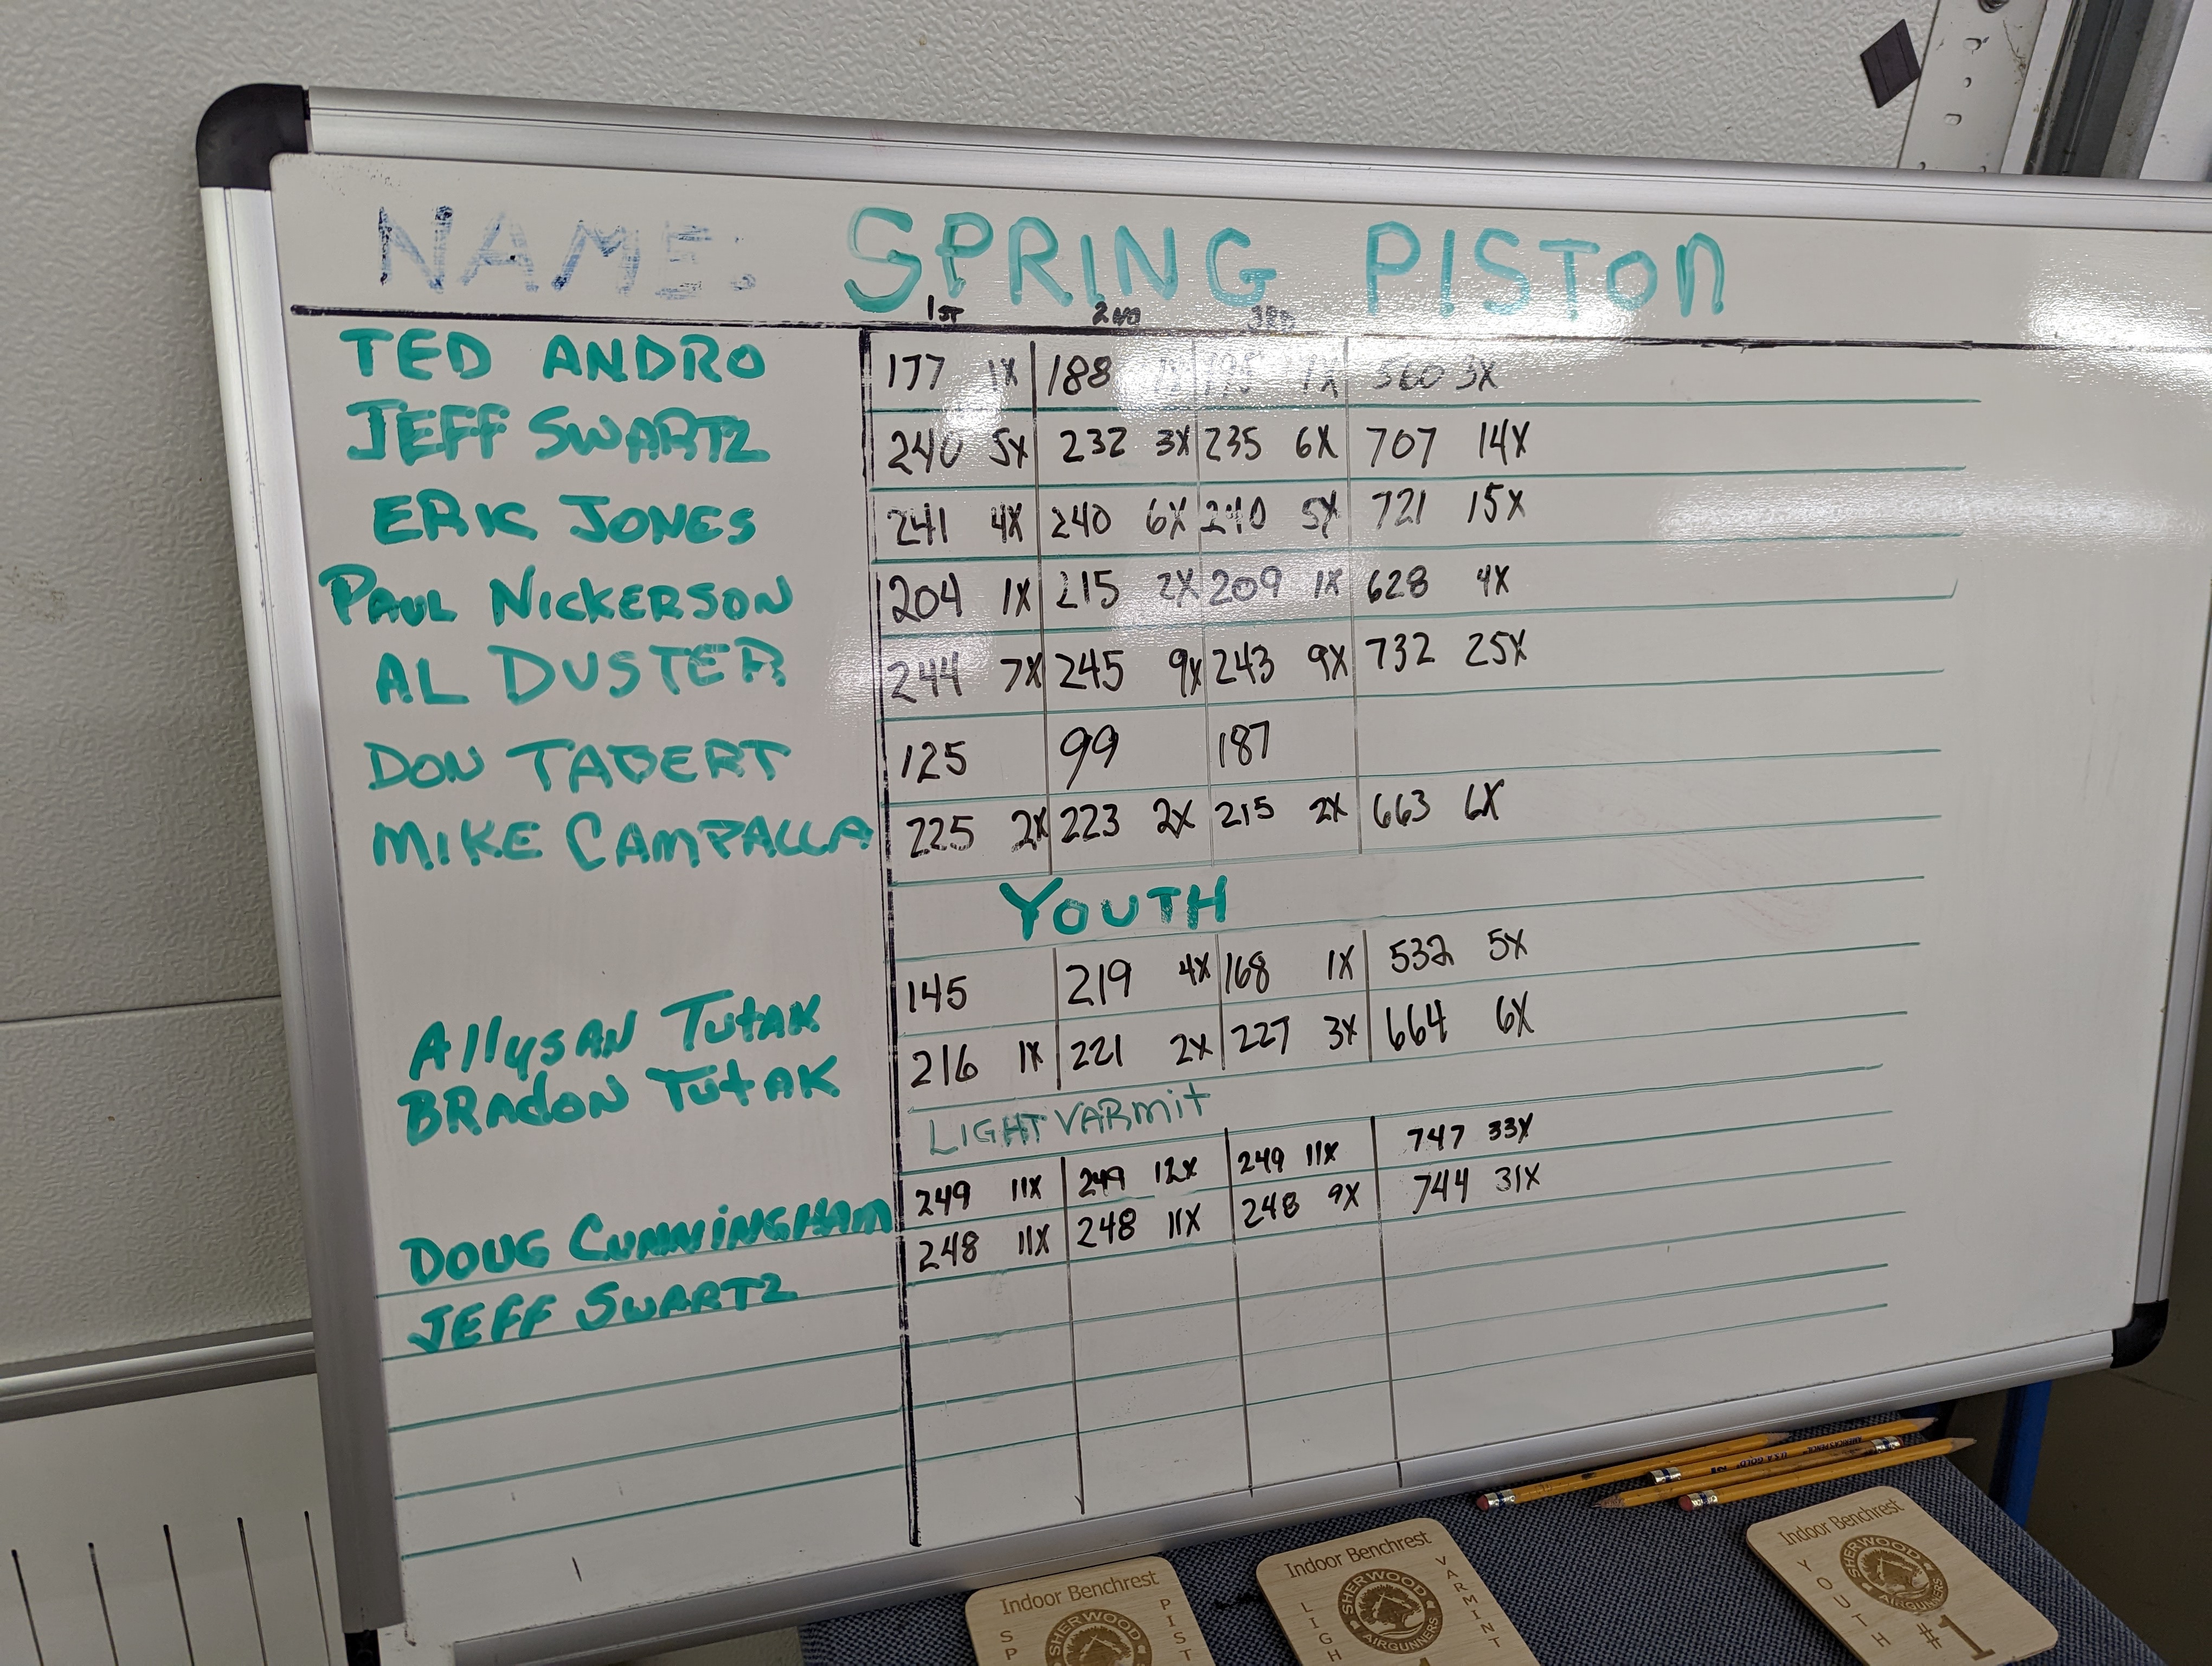 NAME: SPRING PISTON
1ST 2ND 3RD
TED ANDRO 177 1X 188 1X 195 1X 560 3X
JEFF SWARTZ 240 5X 232 3X 235 6X 707 14X
ERIK JONES 241 4X 240 6X 240 5X 721 15X
PAUL NICKERSON 204 1X 215 2X 209 1X 628 4X
AL DUSTER 244 7X 245 9X 243 9X 732 25X
DON TABERT 125 99 187
MIKE CAMPALLA 225 2X 223 2X 215 2X 663 6X
YOUTH
AllysAN TutAK 145 219 4X 168 1X 532 5X
BRAdON TutAK 216 1X 221 2X 227 3X 664 6X
LIGHT VARmit
DOUG CUNNINGHAM 249 11X 249 12X 249 11X 747 33X
JEFF SWARTZ 248 11X 248 11X 248 9X 744 31X
U.S.A GOLD
AMERICA'S PENCIL
Indoor Benchrest
SHERWOOD
SP
PIST
Indoor Benchrest
SHERWOOD
AIRGUNNERS
LIGH
VARMINT
Indoor Benchrest
SHERWOOD
AIRGUNNERS
YOUTH
#1